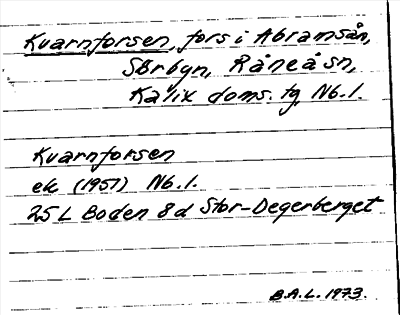 Kvarnforsen, fors i Abramsån,
Sörbyn, Råneå sn,
Kalix doms. tg, Nb. l.
Kvarnforsen
ek (1951) Nb. l.
25 L Boden 8 d Stor-Degerberget
B.A.L. 1973.